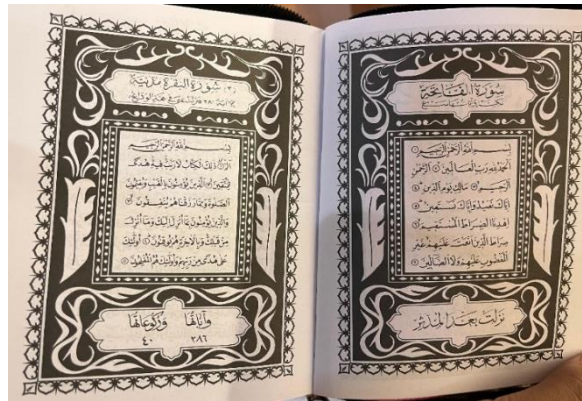 سورة الفاتحة
بسم الله الرحمن الرحيم ١
الحمد لله رب العالمين ٢ الرحمن
الرحيم ٣ مالك يوم الدين ٤
إياك نعبد وإياك نستعين ٥
اهدنا الصراط المستقيم ٦
صراط الذين أنعمت عليهم غير
المغضوب عليهم ولا الضالين ٧
نزلت بعد المدثر
(٢) سورة البقرة مدنية
بسم الله الرحمن الرحيم
الم ١ ذلك الكتاب لا ريب فيه هدى
للمتقين ٢ الذين يؤمنون بالغيب ويقيمون
الصلوة ومما رزقناهم ينفقون ٣
والذين يؤمنون بما أنزل إليك وما أنزل
من قبلك وبالآخرة هم يوقنون ٤ أولئك
على هدى من ربهم وأولئك هم المفلحون ٥
وآياتها وركوعاتها
٢٨٦ ٤٠